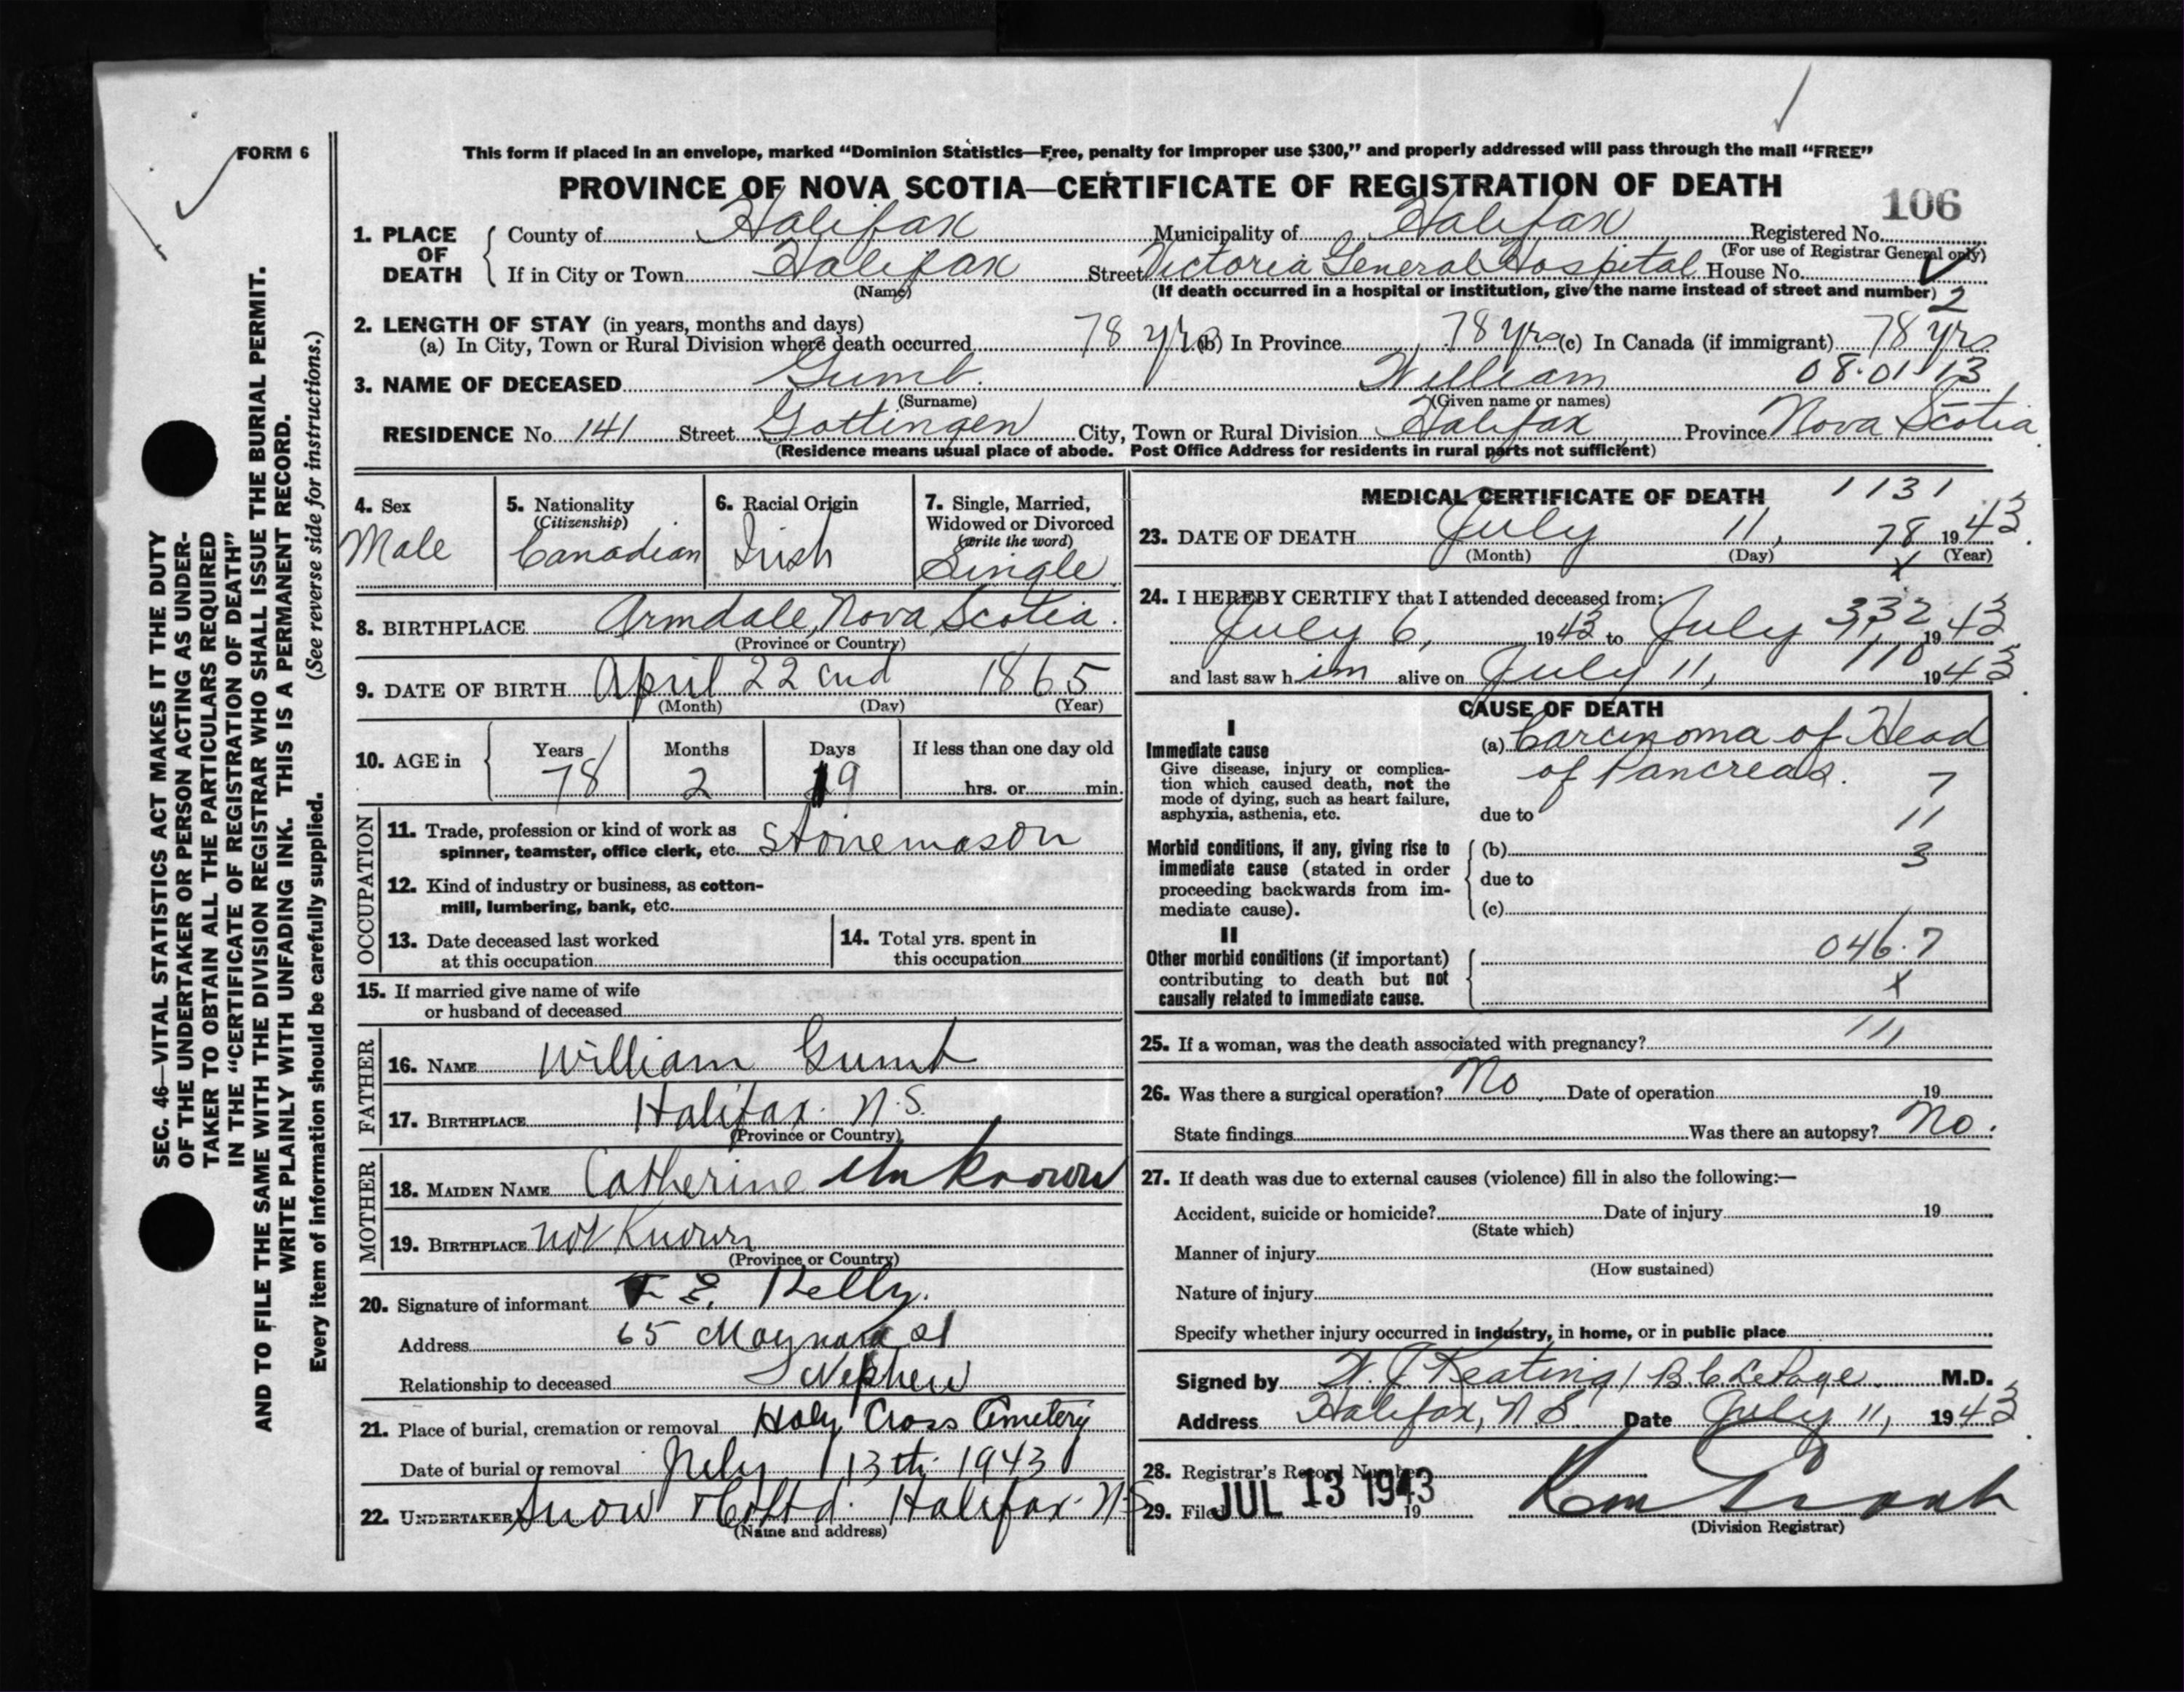 FORM 6
This form if placed in an envelope, marked "Dominion Statistics—Free, penalty for improper use $300," and properly addressed will pass through the mail "FREE"
PROVINCE OF NOVA SCOTIA—CERTIFICATE OF REGISTRATION OF DEATH
106
1. PLACE OF DEATH { County of Halifax Municipality of Halifax Registered No.
(For use of Registrar General only)
If in City or Town Halifax Street Victoria General Hospital House No.
(Name) (If death occurred in a hospital or institution, give the name instead of street and number) 2
2. LENGTH OF STAY (in years, months and days)
(a) In City, Town or Rural Division where death occurred 78 yrs (b) In Province 78 yrs (c) In Canada (if immigrant) 78 yrs
3. NAME OF DECEASED Gumb. William 08.01.13
(Surname) (Given name or names)
RESIDENCE No. 141 Street Gottingen City, Town or Rural Division Halifax Province Nova Scotia
(Residence means usual place of abode. Post Office Address for residents in rural parts not sufficient)
4. Sex
Male
5. Nationality
(Citizenship)
Canadian
6. Racial Origin
Irish
7. Single, Married,
Widowed or Divorced
(write the word)
Single
8. BIRTHPLACE Armdale, Nova Scotia.
(Province or Country)
9. DATE OF BIRTH April 22nd 1865
(Month) (Day) (Year)
10. AGE in { Years Months Days If less than one day old
78 2 19 hrs. or min.
OCCUPATION
11. Trade, profession or kind of work as
spinner, teamster, office clerk, etc. Stonemason
12. Kind of industry or business, as cotton-
mill, lumbering, bank, etc.
13. Date deceased last worked
at this occupation
14. Total yrs. spent in
this occupation
15. If married give name of wife
or husband of deceased
FATHER
16. NAME William Gumb
17. BIRTHPLACE Halifax. N.S.
(Province or Country)
MOTHER
18. MAIDEN NAME Catherine Unknown
19. BIRTHPLACE not Known
(Province or Country)
20. Signature of informant F E. Kelly.
Address 65 Maynard St
Relationship to deceased Nephew
21. Place of burial, cremation or removal Holy Cross Cemetery
Date of burial or removal July 13th 1943
22. UNDERTAKER Snow & Co Ltd. Halifax. N.S
(Name and address)
MEDICAL CERTIFICATE OF DEATH 1131
23. DATE OF DEATH July 11, 78 1943.
(Month) (Day) x (Year)
24. I HEREBY CERTIFY that I attended deceased from:
332
July 6, 1943 to July 11, 1943
110
and last saw him alive on July 11, 1943
CAUSE OF DEATH
I
Immediate cause
Give disease, injury or complica-
tion which caused death, not the
mode of dying, such as heart failure,
asphyxia, asthenia, etc.
(a) Carcinoma of Head
of Pancreas. 7
due to 11
Morbid conditions, if any, giving rise to
immediate cause (stated in order
proceeding backwards from im-
mediate cause).
(b) 3
due to
(c)
II
Other morbid conditions (if important)
contributing to death but not
causally related to immediate cause.
046.7
x
25. If a woman, was the death associated with pregnancy? 111
26. Was there a surgical operation? No Date of operation 19
State findings Was there an autopsy? No.
27. If death was due to external causes (violence) fill in also the following:—
Accident, suicide or homicide? Date of injury 19
(State which)
Manner of injury
(How sustained)
Nature of injury
Specify whether injury occurred in industry, in home, or in public place
Signed by W. J. Keating / B. C. LePage M.D.
Address Halifax, N S. Date July 11, 1943
28. Registrar's Record Number
29. Filed JUL 13 1943 19
(Division Registrar)
SEC. 46—VITAL STATISTICS ACT MAKES IT THE DUTY
OF THE UNDERTAKER OR PERSON ACTING AS UNDER-
TAKER TO OBTAIN ALL THE PARTICULARS REQUIRED
IN THE "CERTIFICATE OF REGISTRATION OF DEATH"
AND TO FILE THE SAME WITH THE DIVISION REGISTRAR WHO SHALL ISSUE THE BURIAL PERMIT.
WRITE PLAINLY WITH UNFADING INK. THIS IS A PERMANENT RECORD.
Every item of information should be carefully supplied. (See reverse side for instructions.)